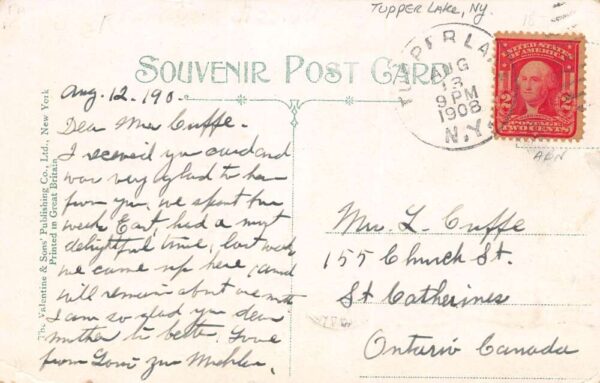 TUPPER LAKE, NY.
18
SOUVENIR POST CARD
TUPPER LAKE
AUG
13
9 PM
1908
N.Y.
UNITED STATES
OF AMERICA
2 2
POSTAGE
TWO CENTS
The Valentine & Sons' Publishing Co., Ltd., New York
Printed in Great Britain
Aug. 12. 190
Dear Mrs Cuffe.
I received your card and
was very glad to hear
from you. we spent
week East, had a most
delightful time, last week
we came up here, and
will remain about one
I am so glad your dear
mother is better. Love
from
Mrs. L. Cuffe
155 Church St.
St Catherines
Ontario Canada